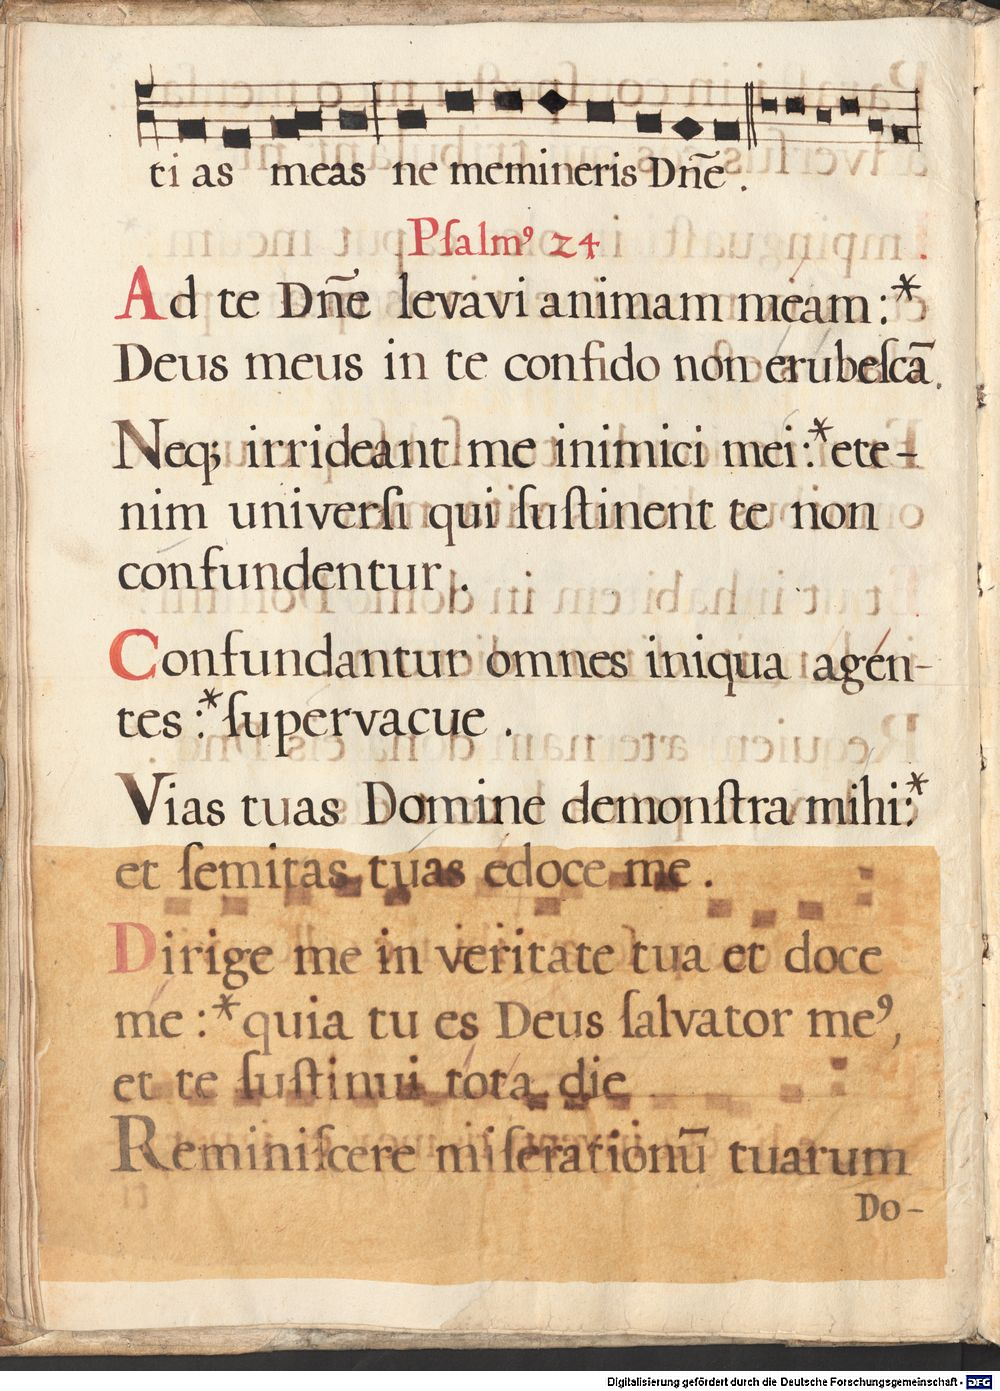 ti as meas ne memineris Dñe .
Pſalmꝰ 24
Ad te Dñe levavi animam méam :*
Deus meus in te confido non erubeſcā.
Neq; irrideant me inimici mei :* ete-
nim univerſi qui ſuſtinent te non
confundentur .
Confundantur omnes iniqua agén-
tes :* ſupervacue .
Vias tuas Domine demonſtra mihi :*
et ſemitas tuas edoce me .
Dirige me in veritate tua et doce
mé :* quia tu es Deus ſalvator meꝰ,
et te ſuſtinui tota die
Reminiſcere miſerationū tuarum
Do-
Digitalisierung gefördert durch die Deutsche Forschungsgemeinschaft - DFG